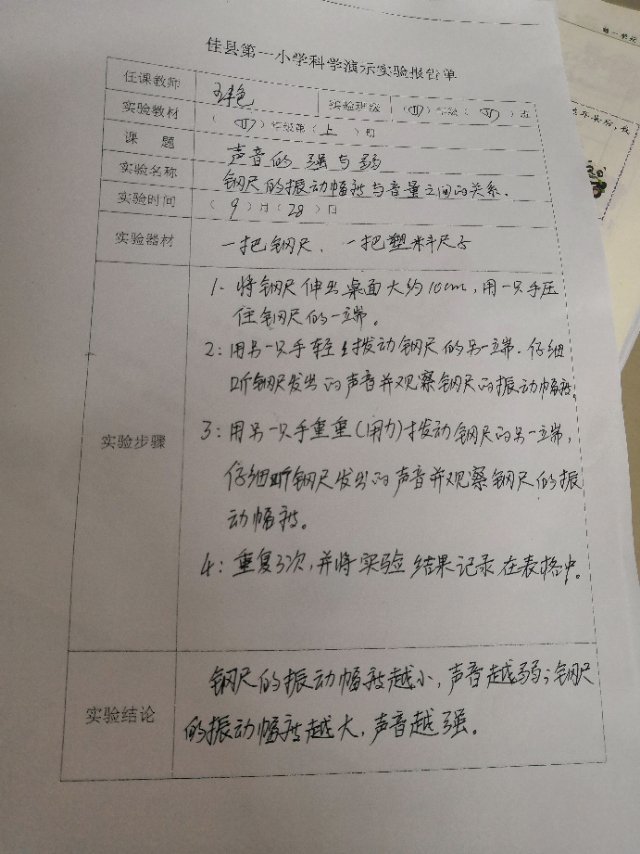 佳县第一小学科学演示实验报告单
任课教师
实验班级 (四)年级(四)班
实验教材 (四)年级第(上)册
课 题 声音的强与弱
实验名称 钢尺的振动幅度与音量之间的关系.
实验时间 (9)月(28)日
实验器材 一把钢尺、一把塑料尺子
实验步骤
1. 将钢尺伸出桌面大约10cm,用一只手压
住钢尺的一端。
2:用另一只手轻轻拨动钢尺的另一端.仔细
听钢尺发出的声音并观察钢尺的振动幅度。
3:用另一只手重重(用力)拨动钢尺的另一端,
仔细听钢尺发出的声音并观察钢尺的振
动幅度。
4:重复3次,并将实验结果记录在表格中。
实验结论
钢尺的振动幅度越小,声音越弱;钢尺
的振动幅度越大,声音越强。